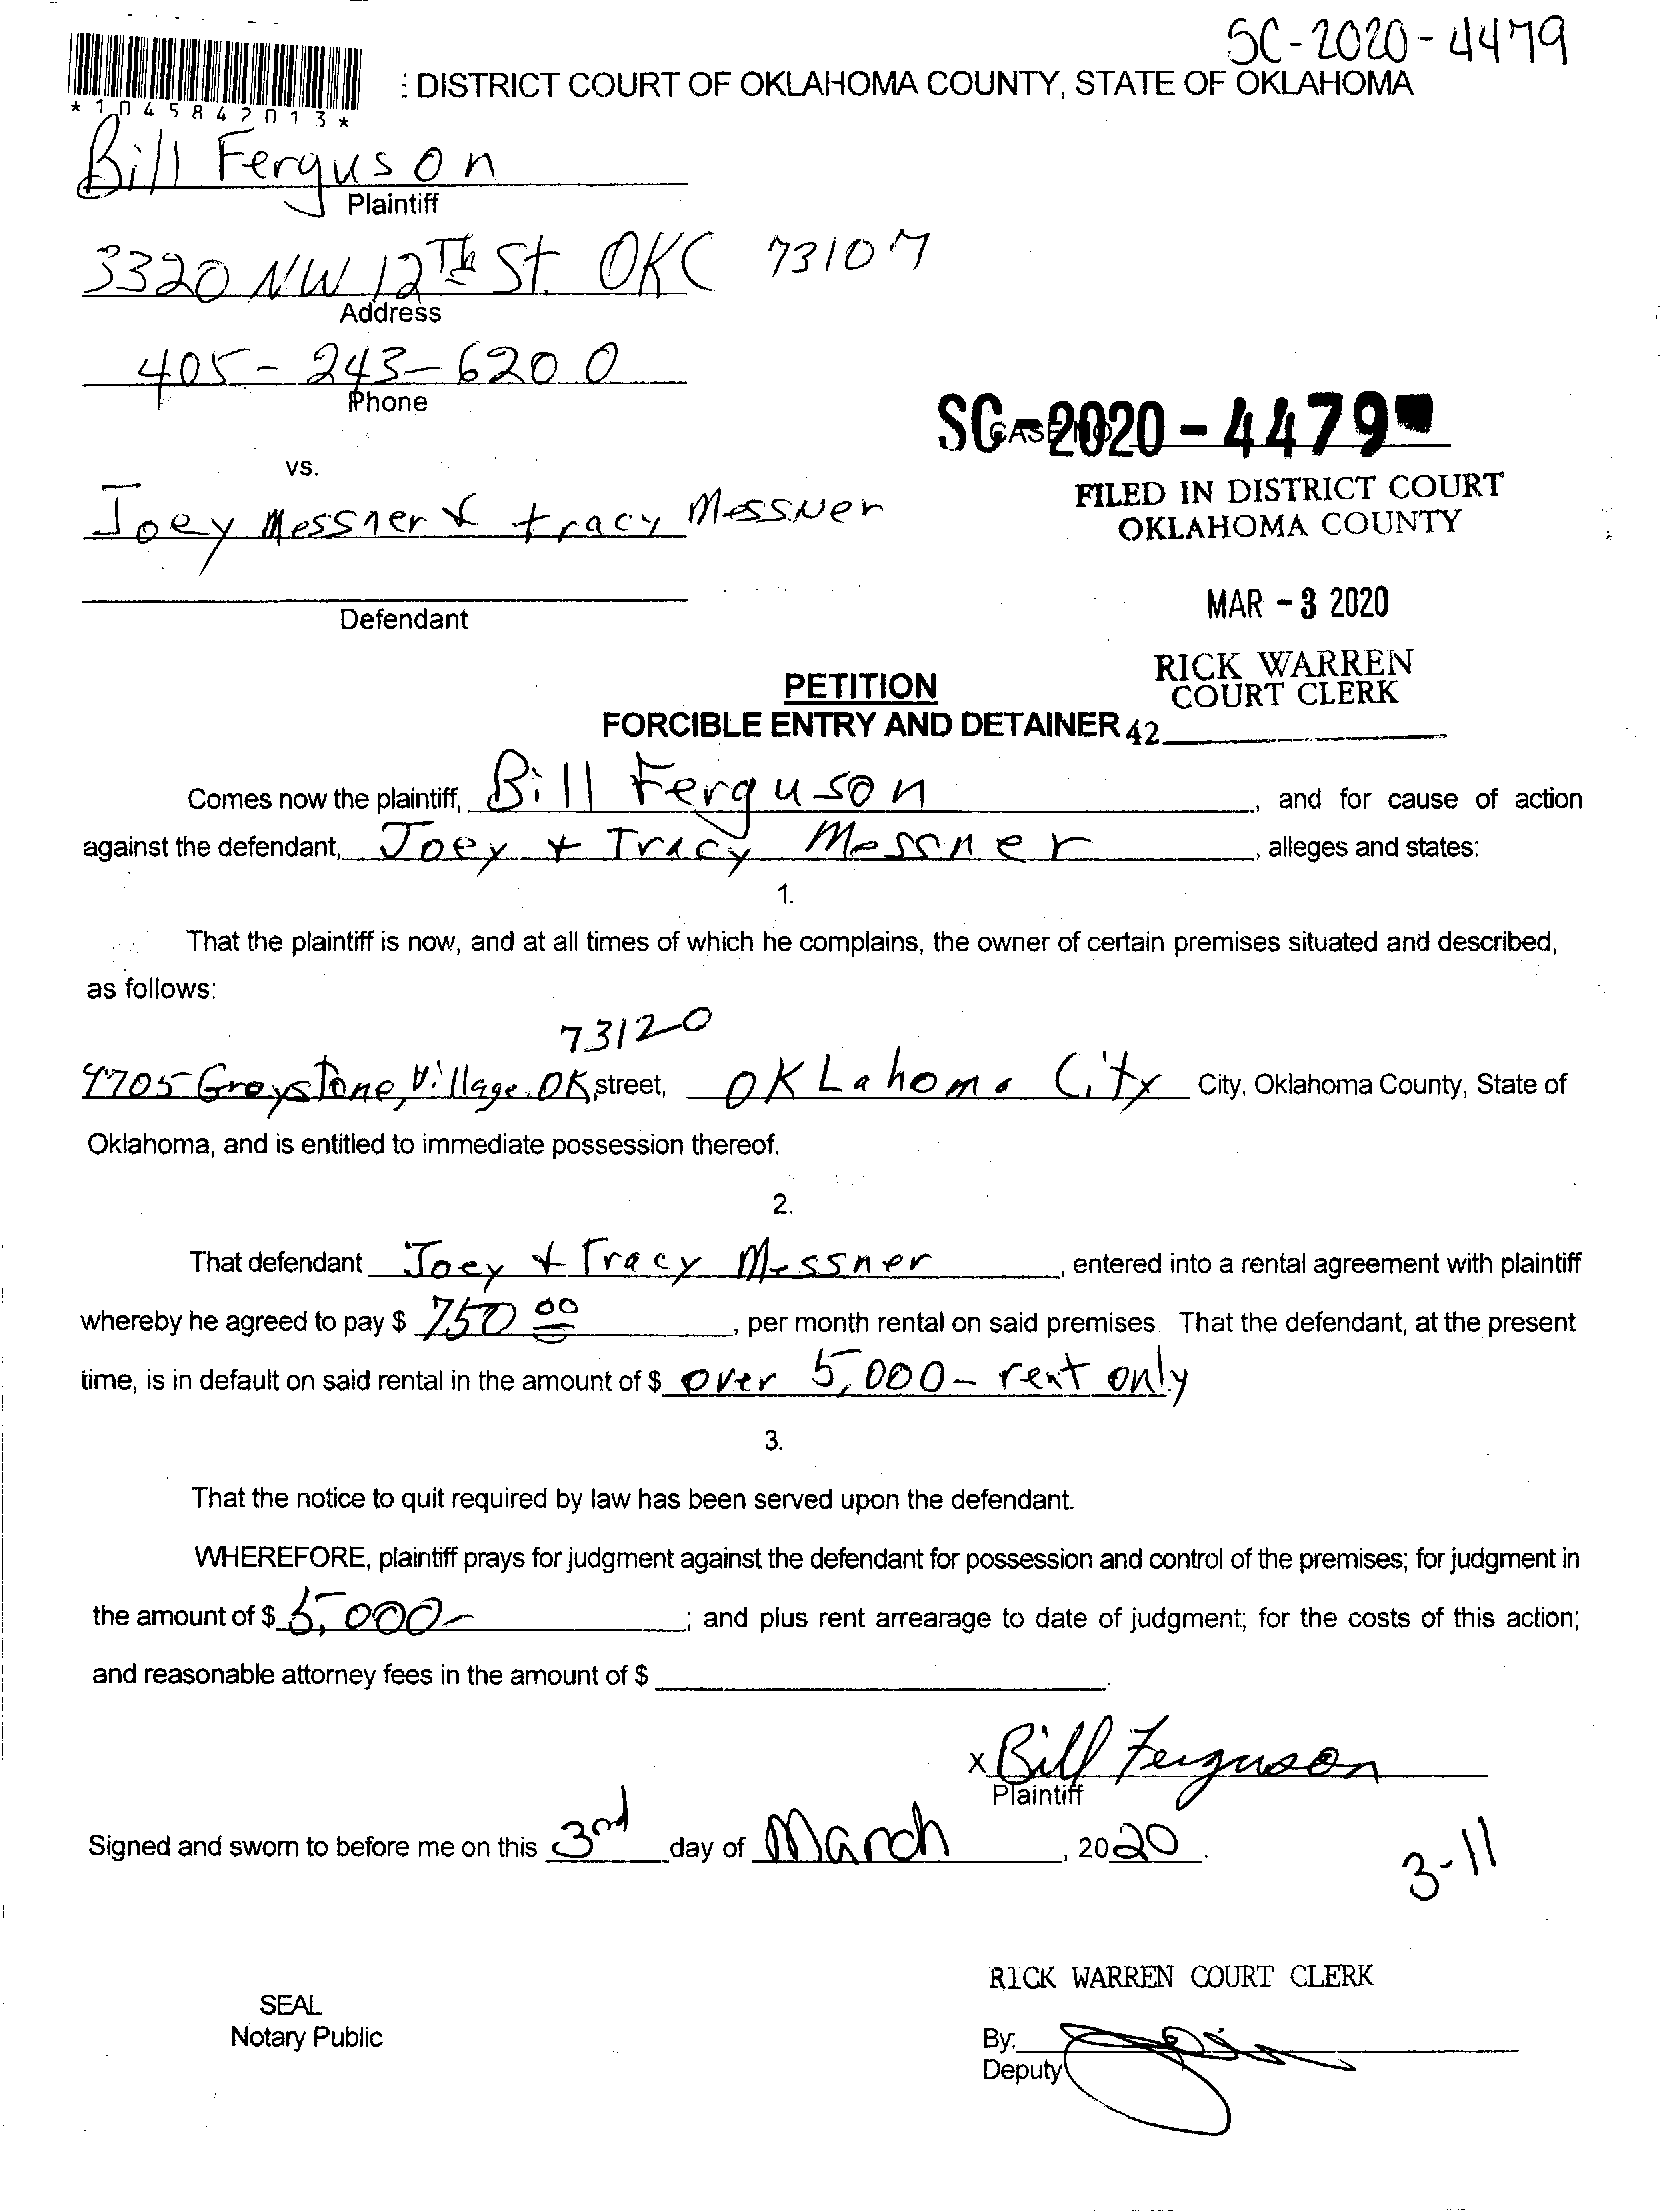 SC-2020-4479
: DISTRICT COURT OF OKLAHOMA COUNTY, STATE OF OKLAHOMA
*1045842013*
Bill Ferguson
Plaintiff
3320 NW 12Th St. OKC 73107
Address
405-243-6200
Phone
SC-2020-4479
vs.
FILED IN DISTRICT COURT
OKLAHOMA COUNTY
Joey Messner & tracy Messner
MAR - 3 2020
Defendant
RICK WARREN
COURT CLERK
PETITION
FORCIBLE ENTRY AND DETAINER 42
Comes now the plaintiff, Bill Ferguson, and for cause of action
against the defendant, Joey + Tracy Messner, alleges and states:
1.
That the plaintiff is now, and at all times of which he complains, the owner of certain premises situated and described,
as follows:
73120
4705 Greystone, Village, OK street, OKLahoma City City, Oklahoma County, State of
Oklahoma, and is entitled to immediate possession thereof.
2.
That defendant Joey + Tracy Messner, entered into a rental agreement with plaintiff
whereby he agreed to pay $ 750 00, per month rental on said premises. That the defendant, at the present
time, is in default on said rental in the amount of $ over 5,000- rent only
3.
That the notice to quit required by law has been served upon the defendant.
WHEREFORE, plaintiff prays for judgment against the defendant for possession and control of the premises; for judgment in
the amount of $ 5,000-; and plus rent arrearage to date of judgment; for the costs of this action;
and reasonable attorney fees in the amount of $
x Bill Ferguson
Plaintiff
Signed and sworn to before me on this 3rd day of March, 2020.
3-11
RICK WARREN COURT CLERK
SEAL
Notary Public
By:
Deputy